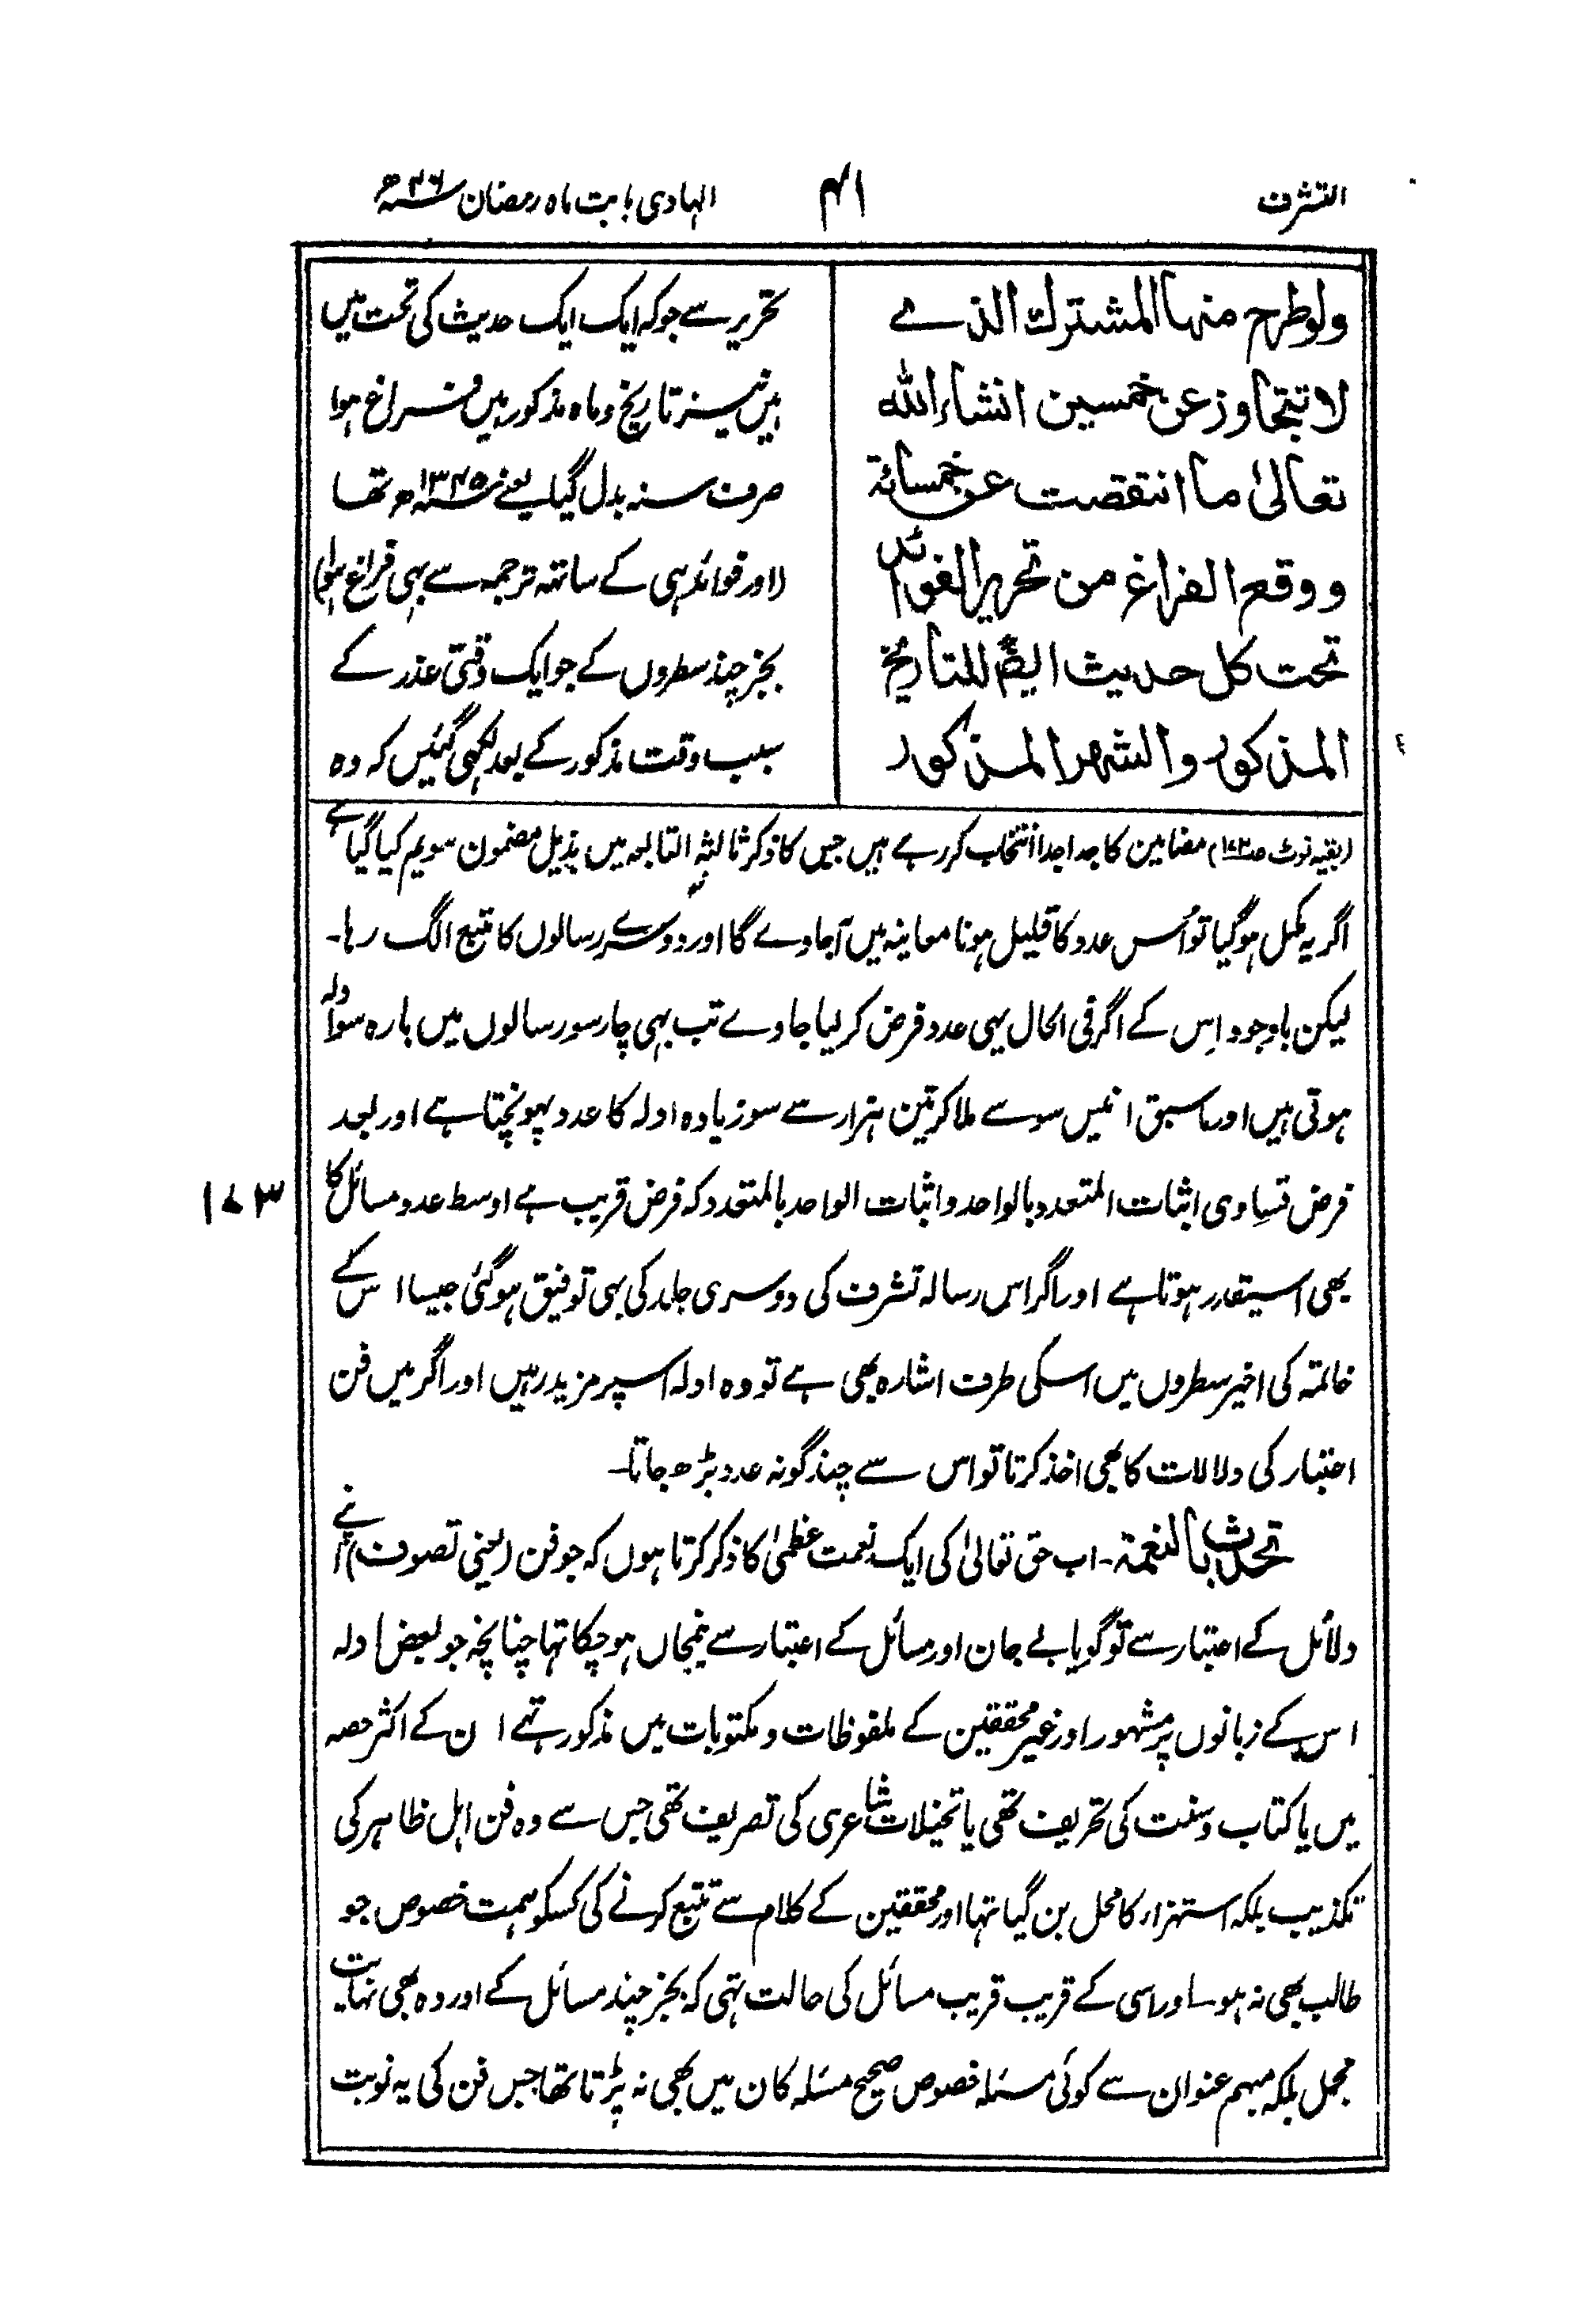 التشرف
۴۱
الہادی بابت ماہ رمضان ۴۶ھ
ولو طرح منها المشترك الذے
لا تتجاوز عن خمسين انشاء الله
تعالىٰ ما انتقصت عن خمسائة
ووقع الفراغ من تحرير الفوائد
تحت كل حديث ايضًا للتاريخ
المذكور والشهر المذكور
تحریر سے جو کہ ایک ایک حدیث کی تحت میں
ہیں نیز تاریخ وماہ مذکور میں فراغ ہوا
صرف سنہ بدل گیا یعنے ۱۳۴۵ھ تھا
(اور فوائد ہی کے ساتھ ترجمہ سے بہی فراغ ہوا)
بجز چند سطروں کے جو ایک وقتی عذر کے
سبب وقت مذکور کے بعد لکھی گئیں کہ وہ
(بقیہ نوٹ صـ۱۷۲) مضامین کا جدا جدا انتخاب کر رہے ہیں جس کا ذکر ثالثہ التابعہ میں بذیل مضمون سویم کیا گیا ہے
اگر یہ مکمل ہو گیا تو اُس عدد کا قلیل ہونا معاینہ میں آجاوے گا اور دوسرے رسالوں کا تتبع الگ رہا۔
لیکن باوجود اِس کے اگر فی الحال یہی عدد فرض کر لیا جاوے تب بہی چار سو رسالوں میں بارہ سو ادلہ
ہوتی ہیں اور ماسبق انیس سو سے ملا کر تین ہزار سے سو زیادہ ادلہ کا عدد پہونچتا ہے اور بعد
فرض تساوی اثبات المتعدد بالواحد و اثبات الواحد بالمتعدد کہ فرض قریب ہے اوسط عدد مسائل کا
۱۷۳
بھی اسیقدر ہوتا ہے اور اگر اس رسالہ تشرف کی دوسری جلد کی بہی توفیق ہو گئی جیسا اس کے
خاتمہ کی اخیر سطروں میں اسکی طرف اشارہ بھی ہے تو وہ ادلہ اسپر مزید رہیں اور اگر میں فن
اعتبار کی دلالات کا بھی اخذ کرتا تو اس سے چند گونہ عدد بڑھ جاتا۔
تحدث بالنعمۃ۔ اب حق تعالیٰ کی ایک نعمت عظمیٰ کا ذکر کرتا ہوں کہ جو فن (یعنی تصوف) اپنے
دلائل کے اعتبار سے تو گویا بے جان اور مسائل کے اعتبار سے نیمجاں ہو چکا تہا چنانچہ جو بعض ادلہ
اس کے زبانوں پر مشہور اور غیر محققین کے ملفوظات و مکتوبات میں مذکور تہے ان کے اکثر حصہ
میں یا کتاب وسنت کی تحریف تھی یا تخیلات شاعری کی تصریف تھی جس سے وہ فن اہل ظاہر کی
تکذیب بلکہ استہزاء کا محل بن گیا تہا اور محققین کے کلام سے تتبع کرنے کی کسکو ہمت خصوص جو
طالب بھی نہ ہو۔ اور اسی کے قریب قریب مسائل کی حالت تہی کہ بجز چند مسائل کے اور وہ بھی نہایت
مجمل بلکہ مبہم عنوان سے کوئی مسئلہ خصوص صحیح مسئلہ کان میں بھی نہ پڑتا تھا جس فن کی یہ نوبت